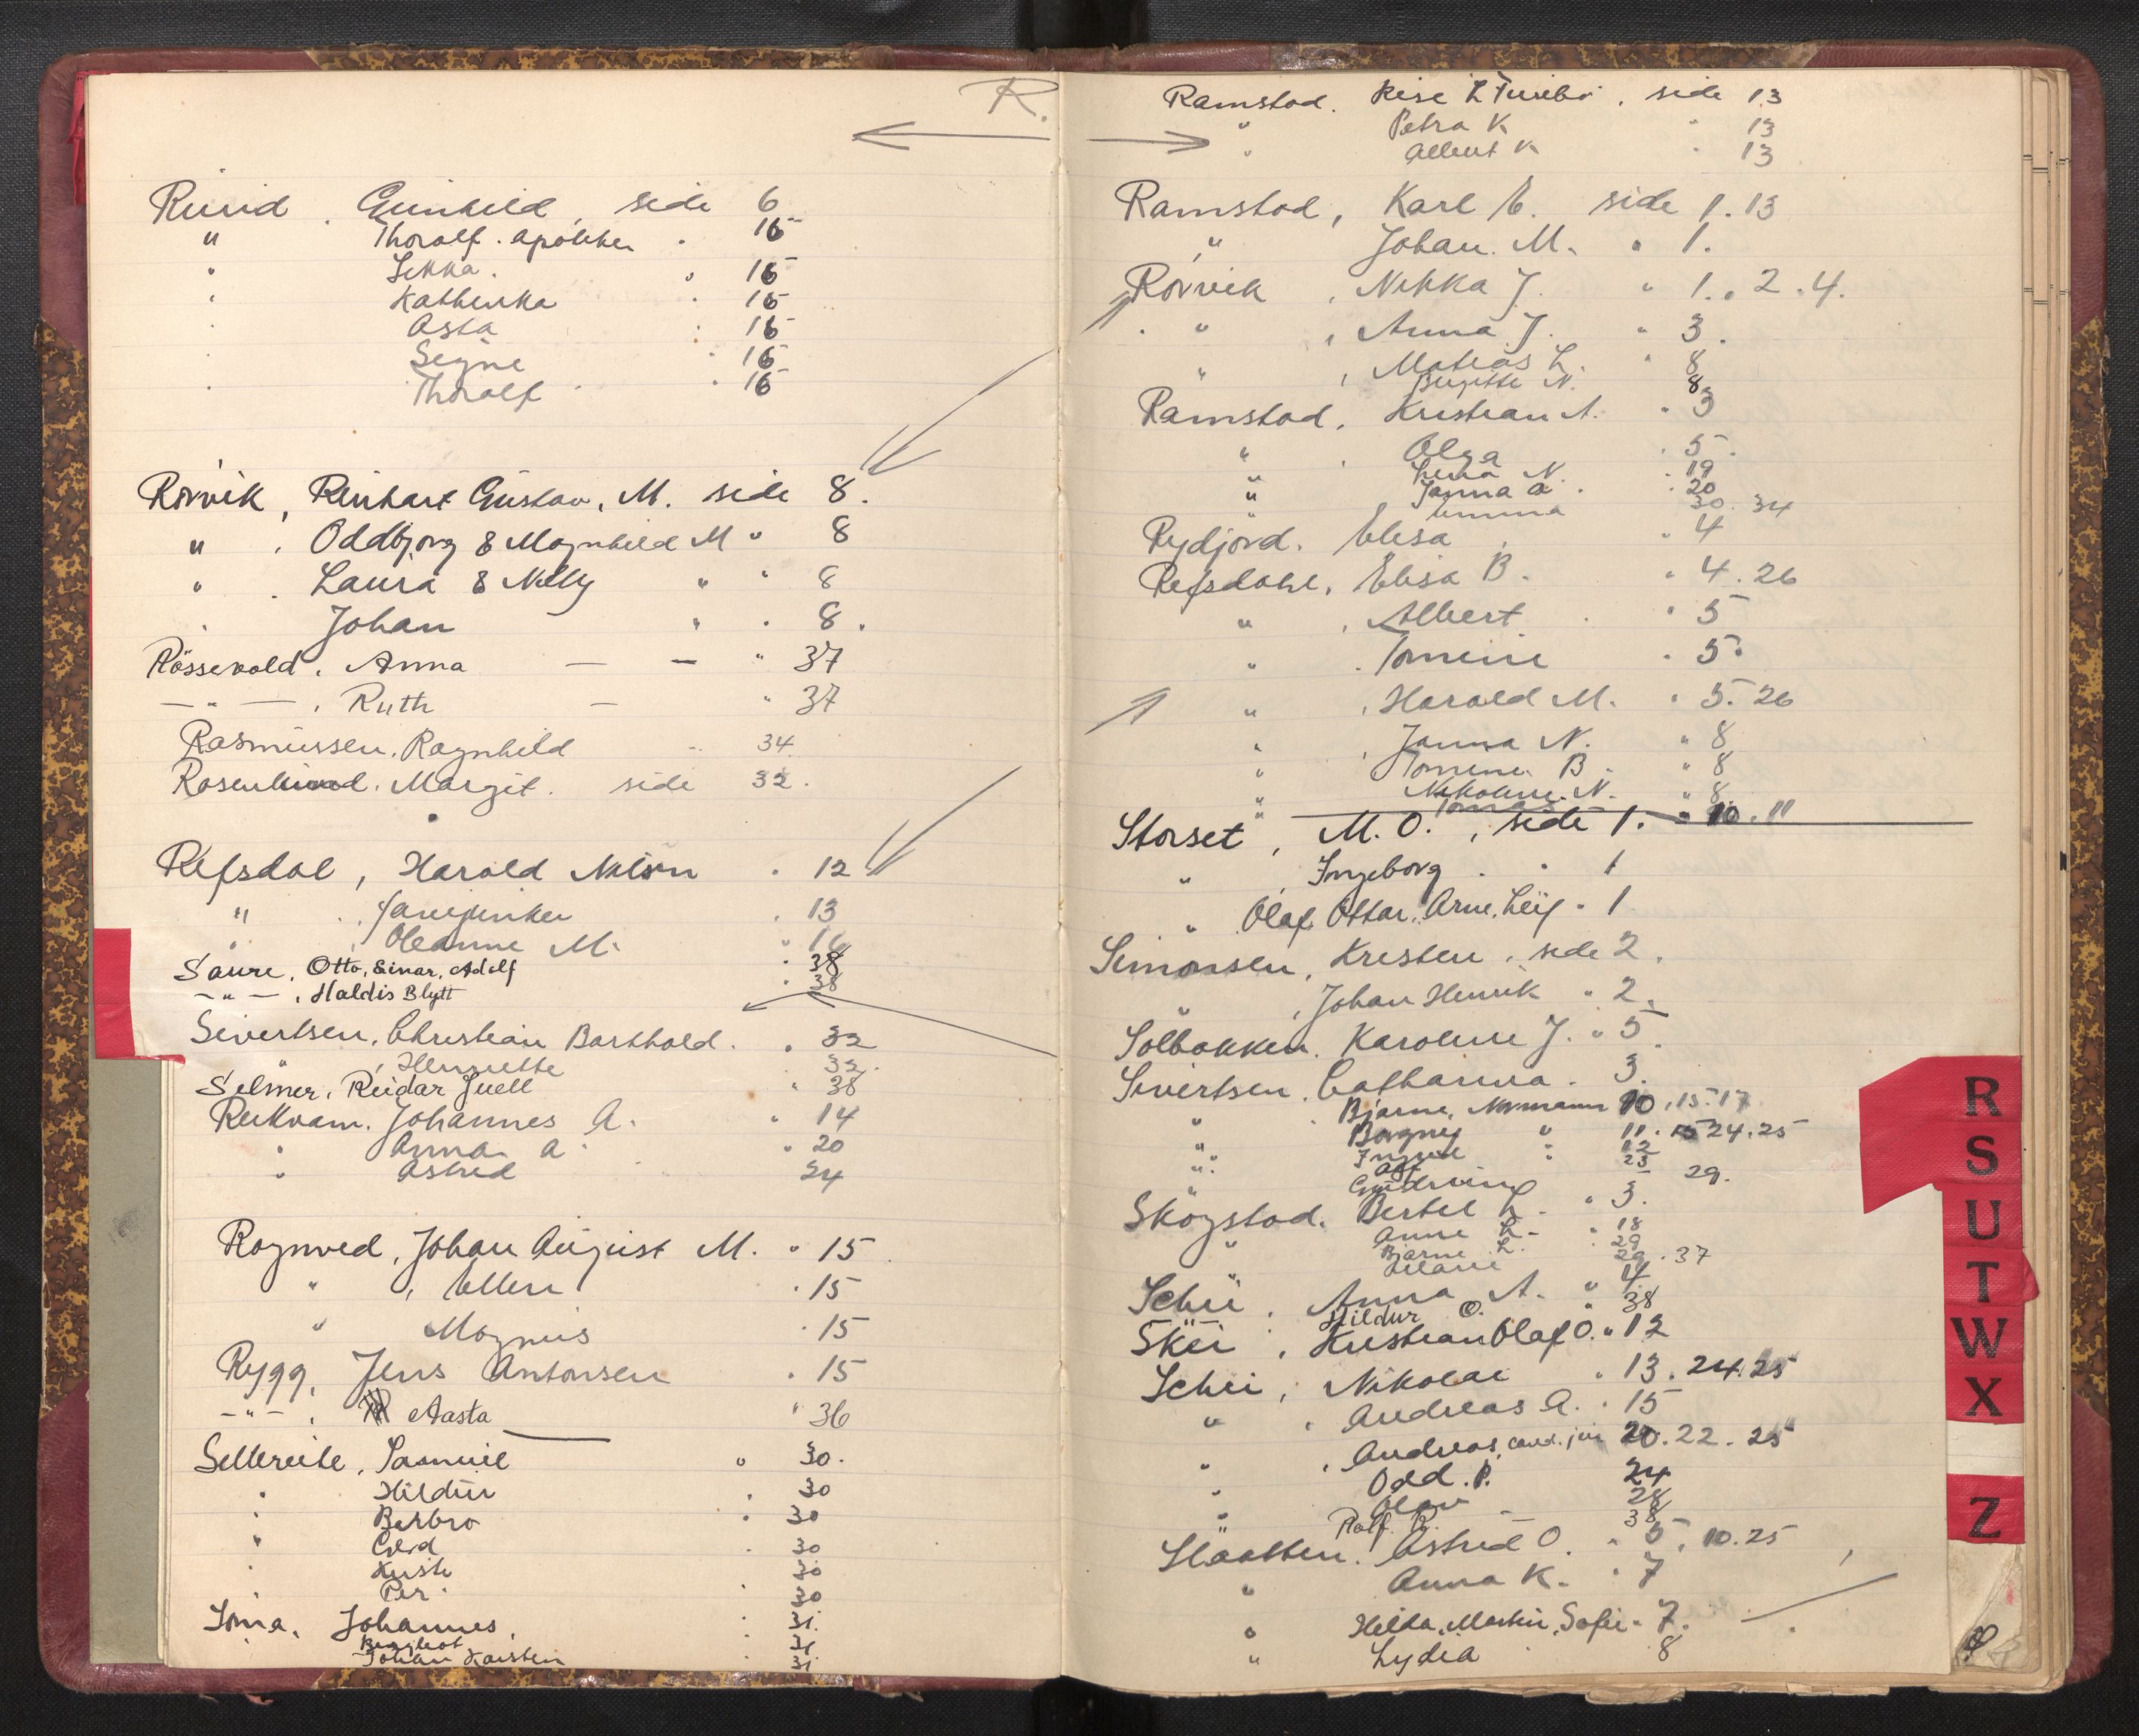 R.
Rusid . Gunhild , side 6
" Thoralf . Apotheker . 16
" Sekka . " 16
" Kathinka . 16
" Asta . 16
" Signe . 16
" Thoralf . 16
Rörvik , Reinhart Gustav, M. side 8 .
" . Oddbjorg & Magnhild M " 8
" . Laura & Nelly " " 8
. Johan " . 8 .
Rössevold . Anna — — " 37
— " — . Ruth — " 37
Rasmussen . Ragnhild .. 34
Margit . side 32 .
Refsdal , Harald Nelson . 12
" . . 13
" . Oleanne M. " 16
Saure . Otto, Einar, Adolf . 38
— " — , Haldis Blytt . 38
Sivertsen . Christian Barthold . . 32
" , Henriette 32 .
Selmer . Reidar Juell " 38
Reikvam . Johannes A. . 14
" Anna A . " 20
" Astrid 24
Rognved , Johan August M. . 15
" , Ellen . 15
" Magnus . 15
Rygg , Jens Antonsen . 15
— " — . Aasta " 36
Sellereite , Samuel " 30 .
" Hildur . 30
" Berbro . 30
" Gerd . 30
" 30
" Per . . 30
Johannes . . 31 .
Bergliot " 31
Johan Karsten . 31
Ramstad . , side 13
" Petra K " 13
" Albert K " 13
Ramstad , Karl E. side 1 . 13
" Johan . M. " 1 .
Rörvik , Nikka J. " 1 . , 2 . 4 .
. " , Anna J. " 3 .
" , Matias L. " 8
Birgitte N. 8
Ramstad , Kristian A. . 3
" . Olga . 5 .
" N. . 19
" Janna a . . 20
" Emma 30 . 34
Rydjord . Elisa . " 4
Refsdahl , Elisa B . " 4 . 26
" , Albert . " 5
" . Tomine . 5 .
" , Harald M. . 5 . 26
" , Janna N. " 8
" Tomine B . " 8
" Nikoline N. " 8
" Tomas
Storset , M. O. , side 1 . " 10 . 11
" , Ingeborg . . 1
" Olaf, Ottar, Arne, Leif . 1
Simonsen , Kristen , side 2 .
" , Johan Henrik " 2 .
Solbakken . Karoline J. " 5 .
Sivertsen . Catharina . 3 .
" Bjarne, Normann 10 . 15 . 17
" Borgny " 11 . 15 24 . 25
" Ingrid " 12
" Alf 23
29 .
Skogstad . Bertel L . " 3 .
" Anne L . " 18
Bjarne L . " 29
" Marie 29 . 37
Schei , Anna A. " 4
— " — Hildur O. " 38
Skei , Kristian Olaf O. " 12
Schei , Nikolai . 13 . 24 . 25
" . Andreas A. . 15
" , Andreas, cand. jur 20 . 22 . 25
" Odd . P. 24
" Olav 28
Rolf . 38
Slaatten . Astrid O. " 5 . 10 . 25
" Anna K. . 7
" Hilda, Martin, Sofie " 7 .
" Lydia 8
R
S
U
T
W
X
Z